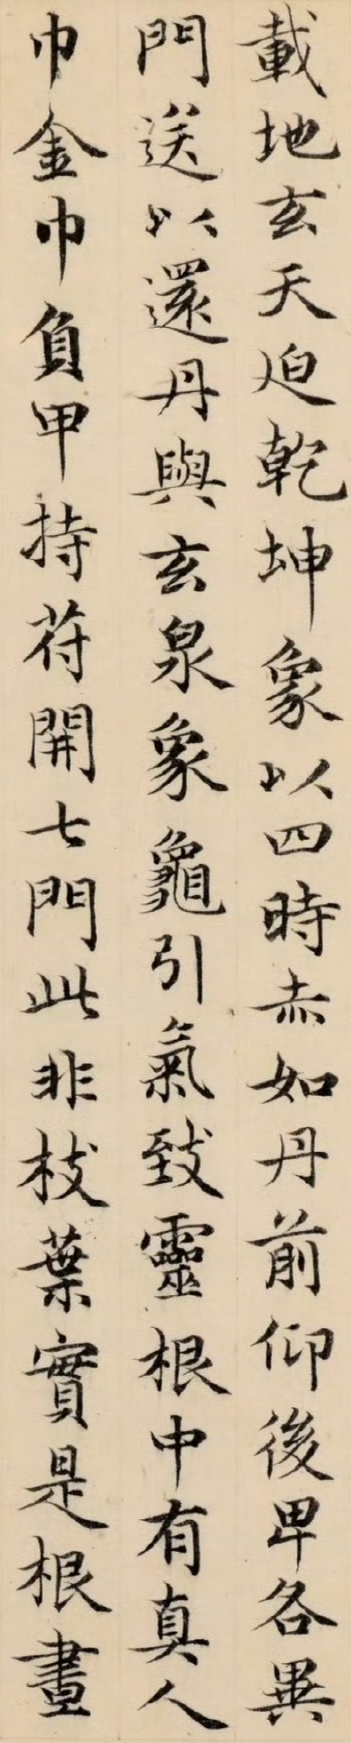 載地玄天迫乾坤象以四時赤如丹前仰後卑各異
門送以還丹與玄泉象龜引氣致靈根中有真人
巾金巾負甲持苻開七門此非枝葉實是根晝